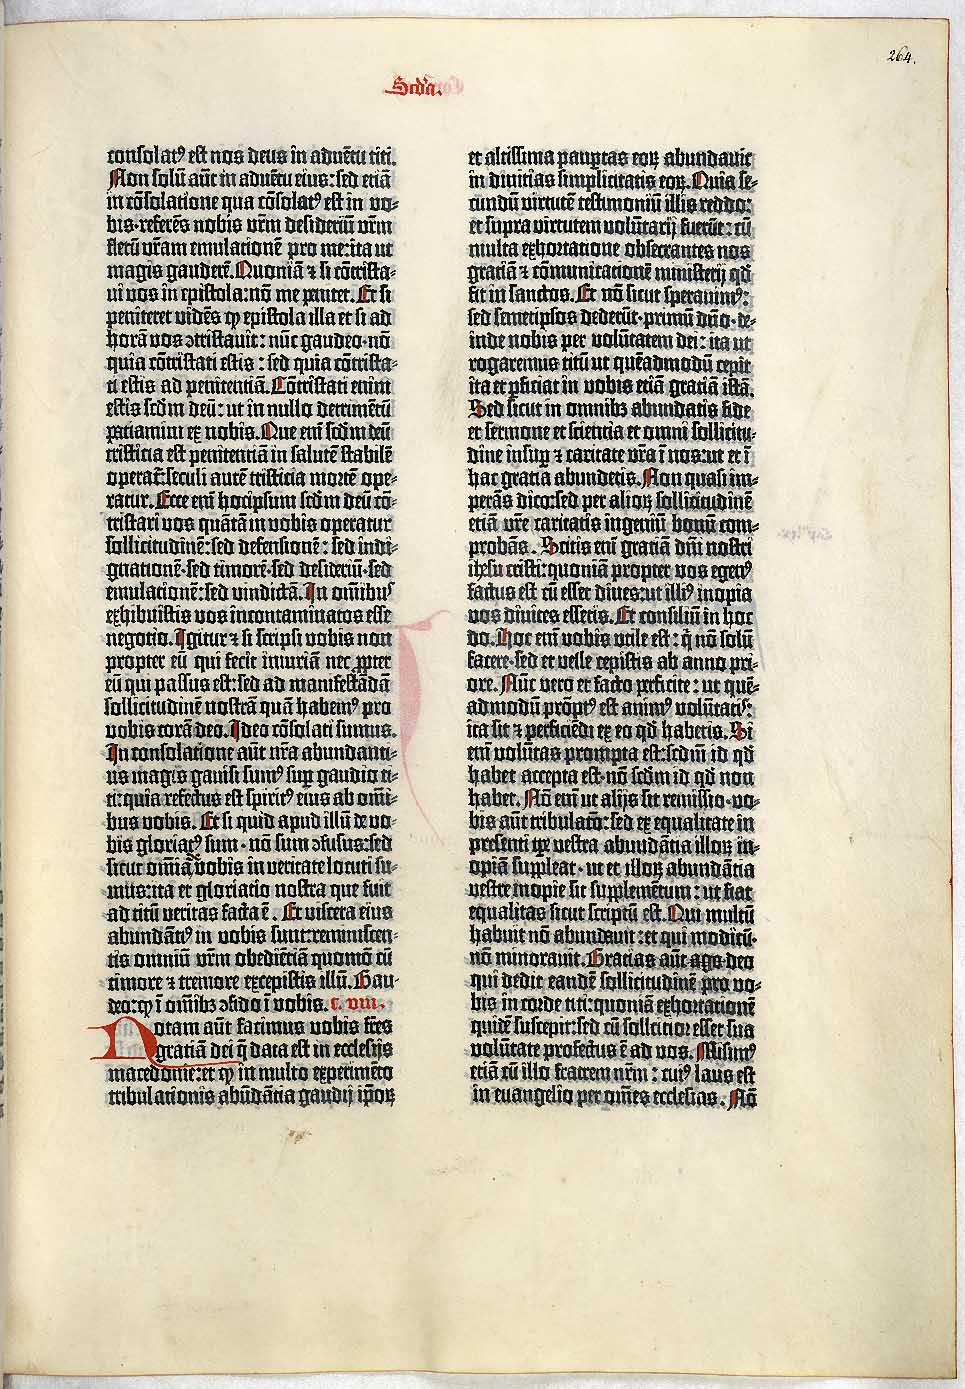 264.
Scd'a.
consolat⁹ est nos deus in adventu titi.
Non solū aūt in advētu eius: sed etiā
in cōsolatione qua cōsolat⁹ est in vo-
bis· referēs nobis vr̄m desideriū vr̄m
fletū vr̄am emulationē pro me: ita ut
magis gauderē. Quoniā ⁊ si cōtrista-
vi vos in epistola: nō me penitet. Et si
peniteret vidēs ꝙ epistola illa et si ad
horā vos ↄtristavit: nūc gaudeo· nō
quia cōtristati estis: sed quia cōtrista-
ti estis ad penitentiā. Cōtristati enim
estis scd̄m deū: ut in nullo detrimētū
patiamini ex nobis. Que eni scd̄m deū
tristicia est penitentiā in salutē stabilē
operat᷑: seculi autē tristicia mortē ope-
ratur. Ecce eni hocipsum scd̄m deū cō-
tristari vos quātā in vobis operatur
sollicitudinē: sed defensionē: sed indi-
gnationē· sed timorē· sed desideriū· sed
emulationē: sed vindictā. In om̄ibu⁹
exhibuistis vos incontaminatos esse
negotio. Igitur ⁊ si scripsi vobis non
propter eū qui fecit iniuriā nec ꝓpter
eū qui passus est: sed ad manifestādā
sollicitudinē nostrā quā habem⁹ pro
vobis corā deo. Ideo cōsolati sumus.
In consolatione aūt nr̄a abundanti-
us magis gavisi sum⁹ suꝑ gaudio ti-
ti: quia refectus est spirit⁹ eius ab om̄i-
bus vobis. Et si quid apud illū de vo-
bis gloriat⁹ sum· nō sum ↄfusus: sed
sicut omīa vobis in veritate locuti su-
mus: ita et gloriatio nostra que fuit
ad titū veritas facta ē. Et viscera eius
abundāti⁹ in vobis sunt: reminiscen-
tis omniū vr̄m obediētiā quomō cū
timore ⁊ tremore excepistis illū. Gau-
deo: ꝙ ī om̄ibꝫ ↄfido ī vobis. c. viii.
Notam aūt facimus vobis fr̄es
gratiā dei q̄ data est in ecclesijs
macedonie: et ꝙ in multo experimēto
tribulationis abūdātia gaudij ip̄oꝝ
et altissima pauꝑtas eoꝝ abundavit
in divitias simplicitatis eoꝝ. Quia se-
cundū virtutē testimoniū illis reddo:
et supra virtutem volūtarij fuerūt: cū
multa exhortatione obsecrantes nos
gratiā ⁊ cōmunicationē ministerij qd̄
fit in sanctos. Et nō sicut speravim⁹:
sed semetipsos dederūt· primū dn̄o· de-
inde nobis per volūtatem dei: ita ut
rogaremus titū ut quēadmodū cepit
ita et ꝑficiat in vobis etiā gratiā istā.
Sed sicut in omnibꝫ abundatis fide
et sermone et scientia et omni sollicitu-
dine insuꝑ ⁊ caritate vr̄a ī nos: ut et ī
hac gratia abundetis. Non quasi im-
perās dico: sed per alioꝝ sollicitudinē
etiā vr̄e caritatis ingeniū bonū com-
probās. Scitis eni gratiā dn̄i nostri
ihesu cristi: quoniā propter vos egen⁹
factus est cū esset dives: ut illi⁹ inopia
vos divites essetis. Et consiliū in hoc
do. Hoc eni vobis utile est: q̄ nō solū
facere· sed et velle cepistis ab anno pri-
ore. Nūc vero et facto ꝑficite: ut quē-
admodū prōpt⁹ est anim⁹ volūtati⁹:
ita sit ⁊ perficiēdi ex eo qd̄ habetis. Si
eni volūtas prompta est: scd̄m id qd̄
habet accepta est· nō scd̄m id qd̄ non
habet. Nō eni ut alijs sit remissio· vo-
bis aūt tribulatō: sed ex equalitate in
presenti tꝑe vestra abundātia illoꝝ in-
opiā suppleat· ut et illoꝝ abundātia
vestre inopie sit supplementum: ut fiat
equalitas sicut scriptū est. Qui multū
habuit nō abundavit: et qui modicū·
nō minoravit. Gratias aūt ago deo
qui dedit eandē sollicitudinē pro vo-
bis in corde titi: quoniā exhortationē
quidē suscepit: sed cū sollicitior esset sua
volūtate profectus ē ad vos. Misim⁹
etiā cū illo fratrem nr̄m: cui⁹ laus est
in evangelio per om̄es ecclesias. Nō